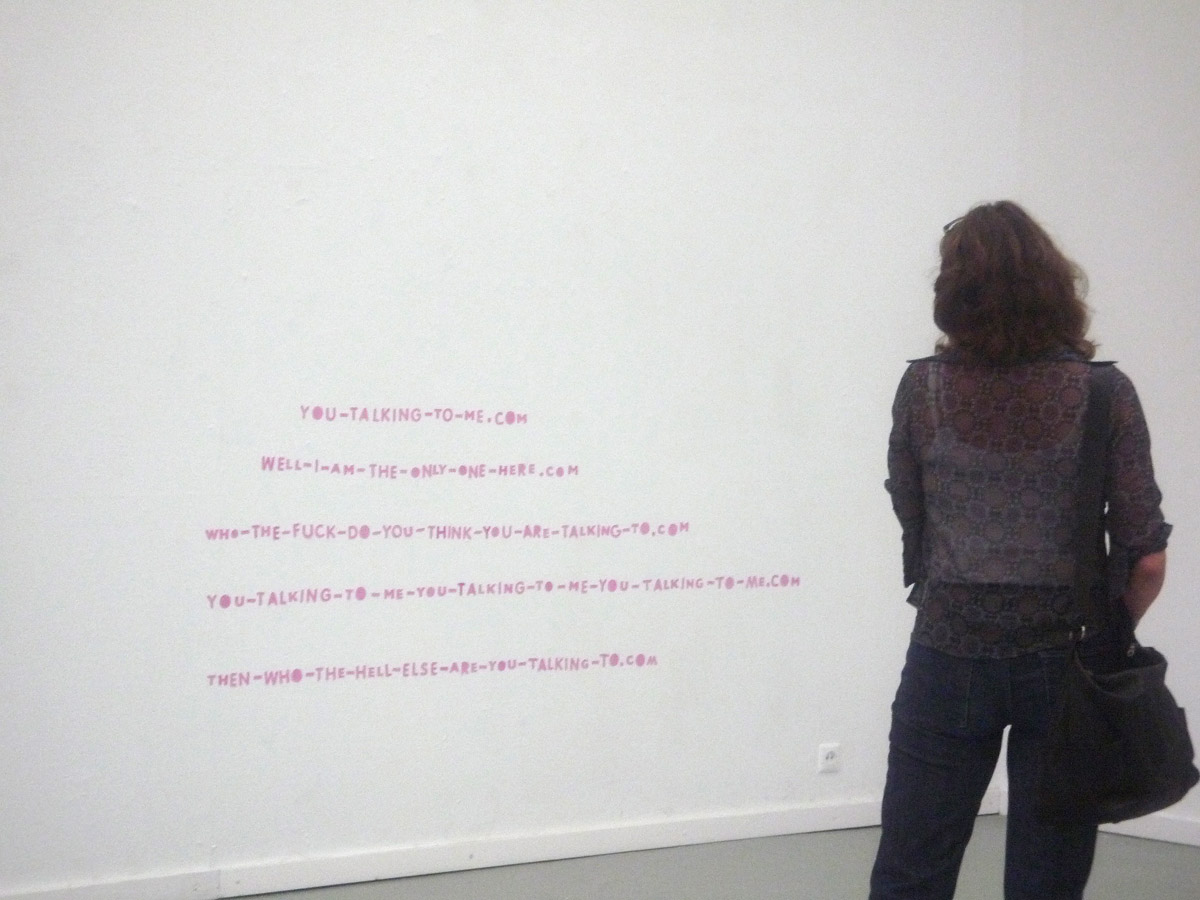 YOU-TALKING-TO-ME.COM
WELL-I-AM-THE-ONLY-ONE-HERE.COM
WHO-THE-FUCK-DO-YOU-THINK-YOU-ARE-TALKING-TO.COM
YOU-TALKING-TO-ME-YOU-TALKING-TO-ME-YOU-TALKING-TO-ME.COM
THEN-WHO-THE-HELL-ELSE-ARE-YOU-TALKING-TO.COM